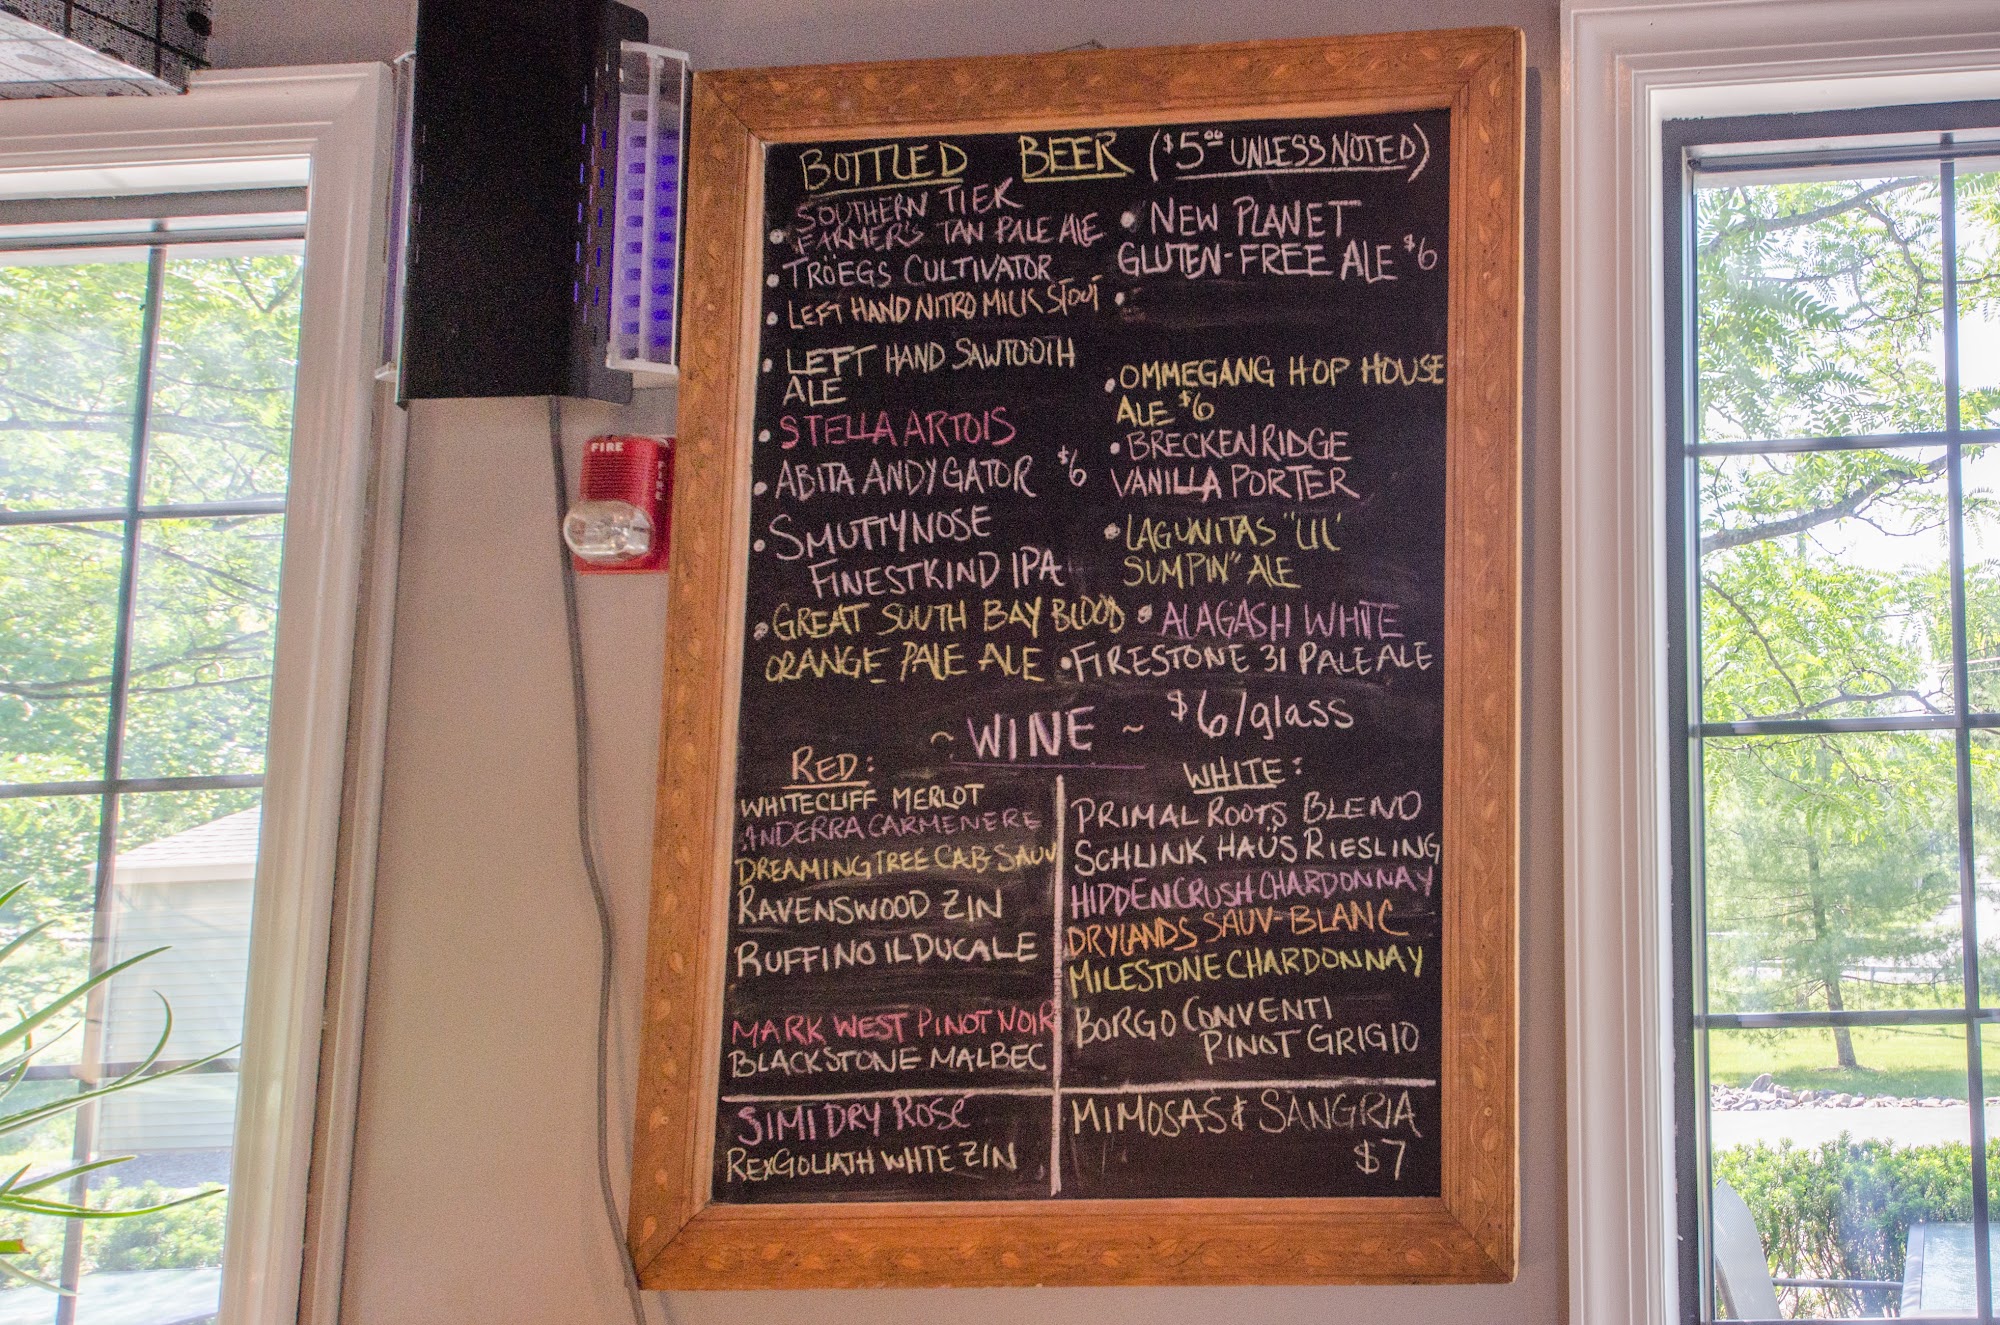 BOTTLED BEER ($5.00 UNLESS NOTED)
SOUTHERN TIEK
• FARMER'S TAN PALE ALE
• TRÖEGS CULTIVATOR
• LEFT HAND NITRO MILK STOUT
• LEFT HAND SAWTOOTH
ALE
• STELLA ARTOIS
• ABITA ANDYGATOR $6
• SMUTTYNOSE
FINESTKIND IPA
• GREAT SOUTH BAY BLOOD
ORANGE PALE ALE
• NEW PLANET
GLUTEN-FREE ALE $6
•
• OMMEGANG HOP HOUSE
ALE $6
• BRECKENRIDGE
VANILLA PORTER
• LAGUNITAS "LIL'
SUMPIN" ALE
• ALAGASH WHITE
• FIRESTONE 31 PALE ALE
~ WINE ~ $6/glass
RED:
WHITECLIFF MERLOT
ANDERRA CARMENERE
DREAMING TREE CAB-SAUV
RAVENSWOOD ZIN
RUFFINO IL DUCALE
MARK WEST PINOT NOIR
BLACKSTONE MALBEC
SIMI DRY ROSÉ
REXGOLIATH WHTE ZIN
WHITE:
PRIMAL ROOTS BLEND
SCHLINK HAÜS RIESLING
HIDDENCRUSH CHARDONNAY
DRYLANDS SAUV-BLANC
MILESTONE CHARDONNAY
BORGO CONVENTI
PINOT GRIGIO
MIMOSAS & SANGRIA
$7
FIRE
FIRE